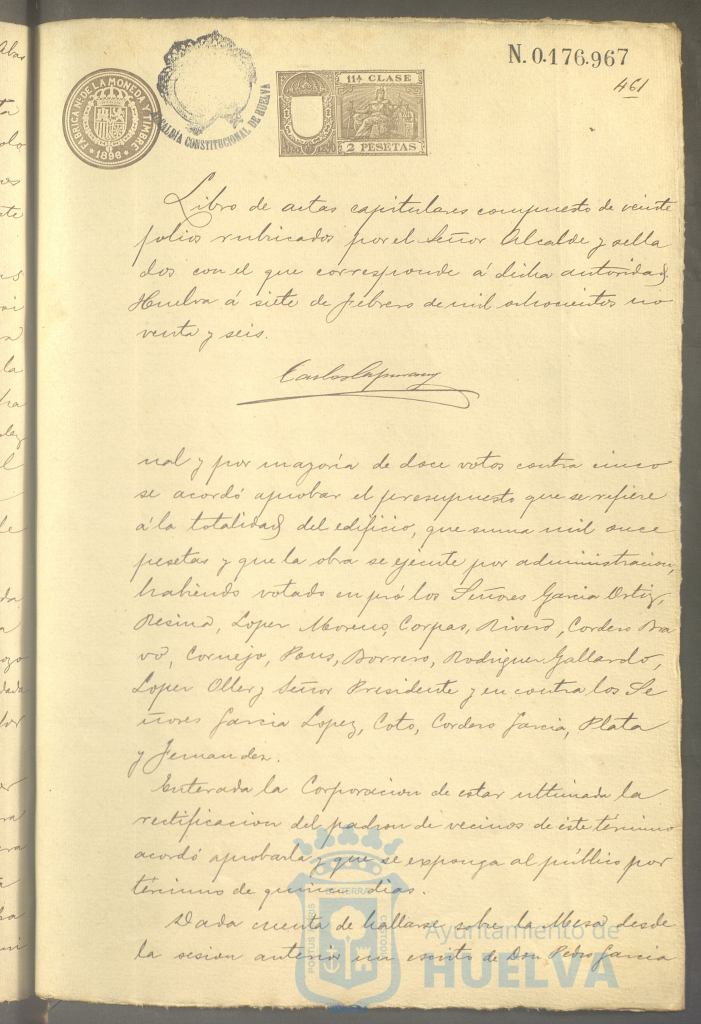 N. 0.176.967
461
FABRICA Nal DE LA MONEDA Y TIMBRE
* 1896 *
ALCALDIA CONSTITUCIONAL DE HUELVA
11ª CLASE
2 PESETAS
Libro de actas capitulares compuesto de veinte
folios rubricados por el Señor Alcalde y sella
dos con el que corresponde á dicha autoridad.
Huelva á siete de febrero de mil ochocientos no
venta y seis.
Carlos
nal y por mayoría de doce votos contra cinco
se acordó aprobar el presupuesto que se refiere
á la totalidad del edificio, que suma mil once
pesetas y que la obra se ejecute por administracion,
habiendo votado en pró los Señores Garcia Ortiz,
Resina, Lopez Moreno, Corpas, Rivero, Cordero Bra
vo, Cornejo, Pons, Borrero, Rodriguez Gallardo,
Lopez Oller y Señor Presidente y en contra los Se
ñores Garcia Lopez, Coto, Cordero Garcia, Plata
y Fernandez.
Enterada la Corporacion de estar ultimada la
rectificacion del padron de vecinos de este término
acordó aprobarla y que se exponga al público por
término de quince dias.
Dada cuenta de hallarse sobre la Mesa desde
la sesion anterior un escrito de Don Pedro Garcia
Ayuntamiento de
HUELVA